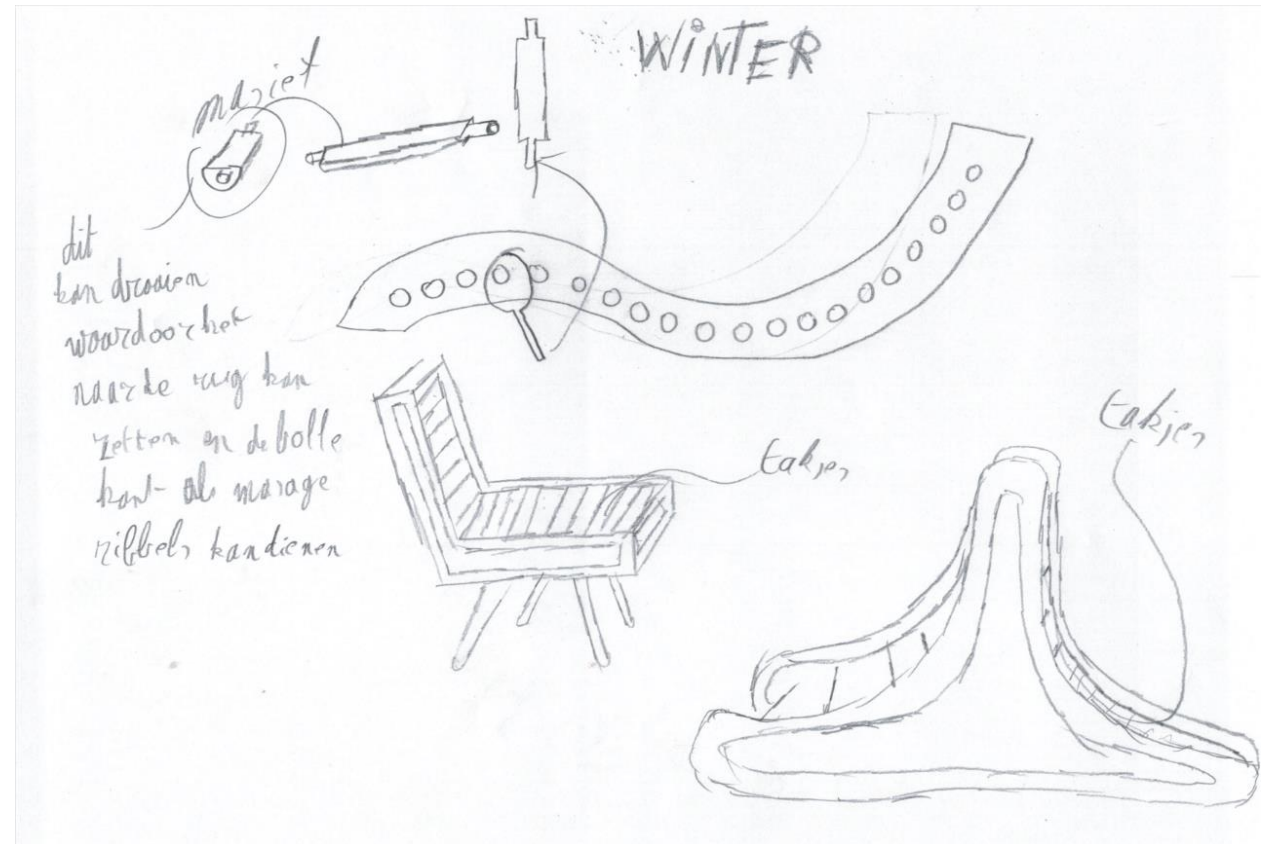 WiNTER
dit
kan draaien
waardoor het
naar de rug kan
zetten en de bolle
kant als masage
ribbels kan dienen
takjes
takjes